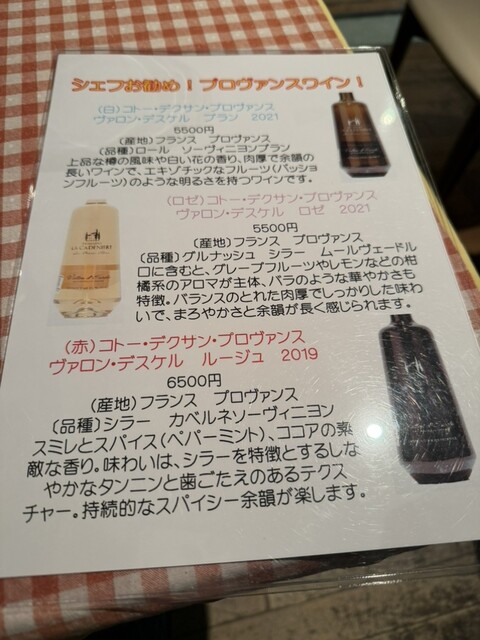 シェフお勧め！プロヴァンスワイン！
（白）コトー・デクサン・プロヴァンス
ヴァロン・デスケル　ブラン　2021
5500円
（産地）フランス　プロヴァンス
（品種）ロール　ソーヴィニヨンブラン
上品な樽の風味や白い花の香り、肉厚で余韻の
長いワインで、エキゾチックなフルーツ（パッショ
ンフルーツ）のような明るさを持つワインです。
（ロゼ）コトー・デクサン・プロヴァンス
ヴァロン・デスケル　ロゼ　2021
5500円
（産地）フランス　プロヴァンス
（品種）グルナッシュ　シラー　ムールヴェードル
口に含むと、グレープフルーツやレモンなどの柑
橘系のアロマが主体、バラのような華やかさも
特徴。バランスのとれた肉厚でしっかりした味わ
いで、まろやかさと余韻が長く感じられます。
（赤）コトー・デクサン・プロヴァンス
ヴァロン・デスケル　ルージュ　2019
6500円
（産地）フランス　プロヴァンス
（品種）シラー　カベルネソーヴィニヨン
スミレとスパイス（ペパーミント）、ココアの素
敵な香り。味わいは、シラーを特徴とするしな
やかなタンニンと歯ごたえのあるテクス
チャー。持続的なスパイシー余韻が楽します。